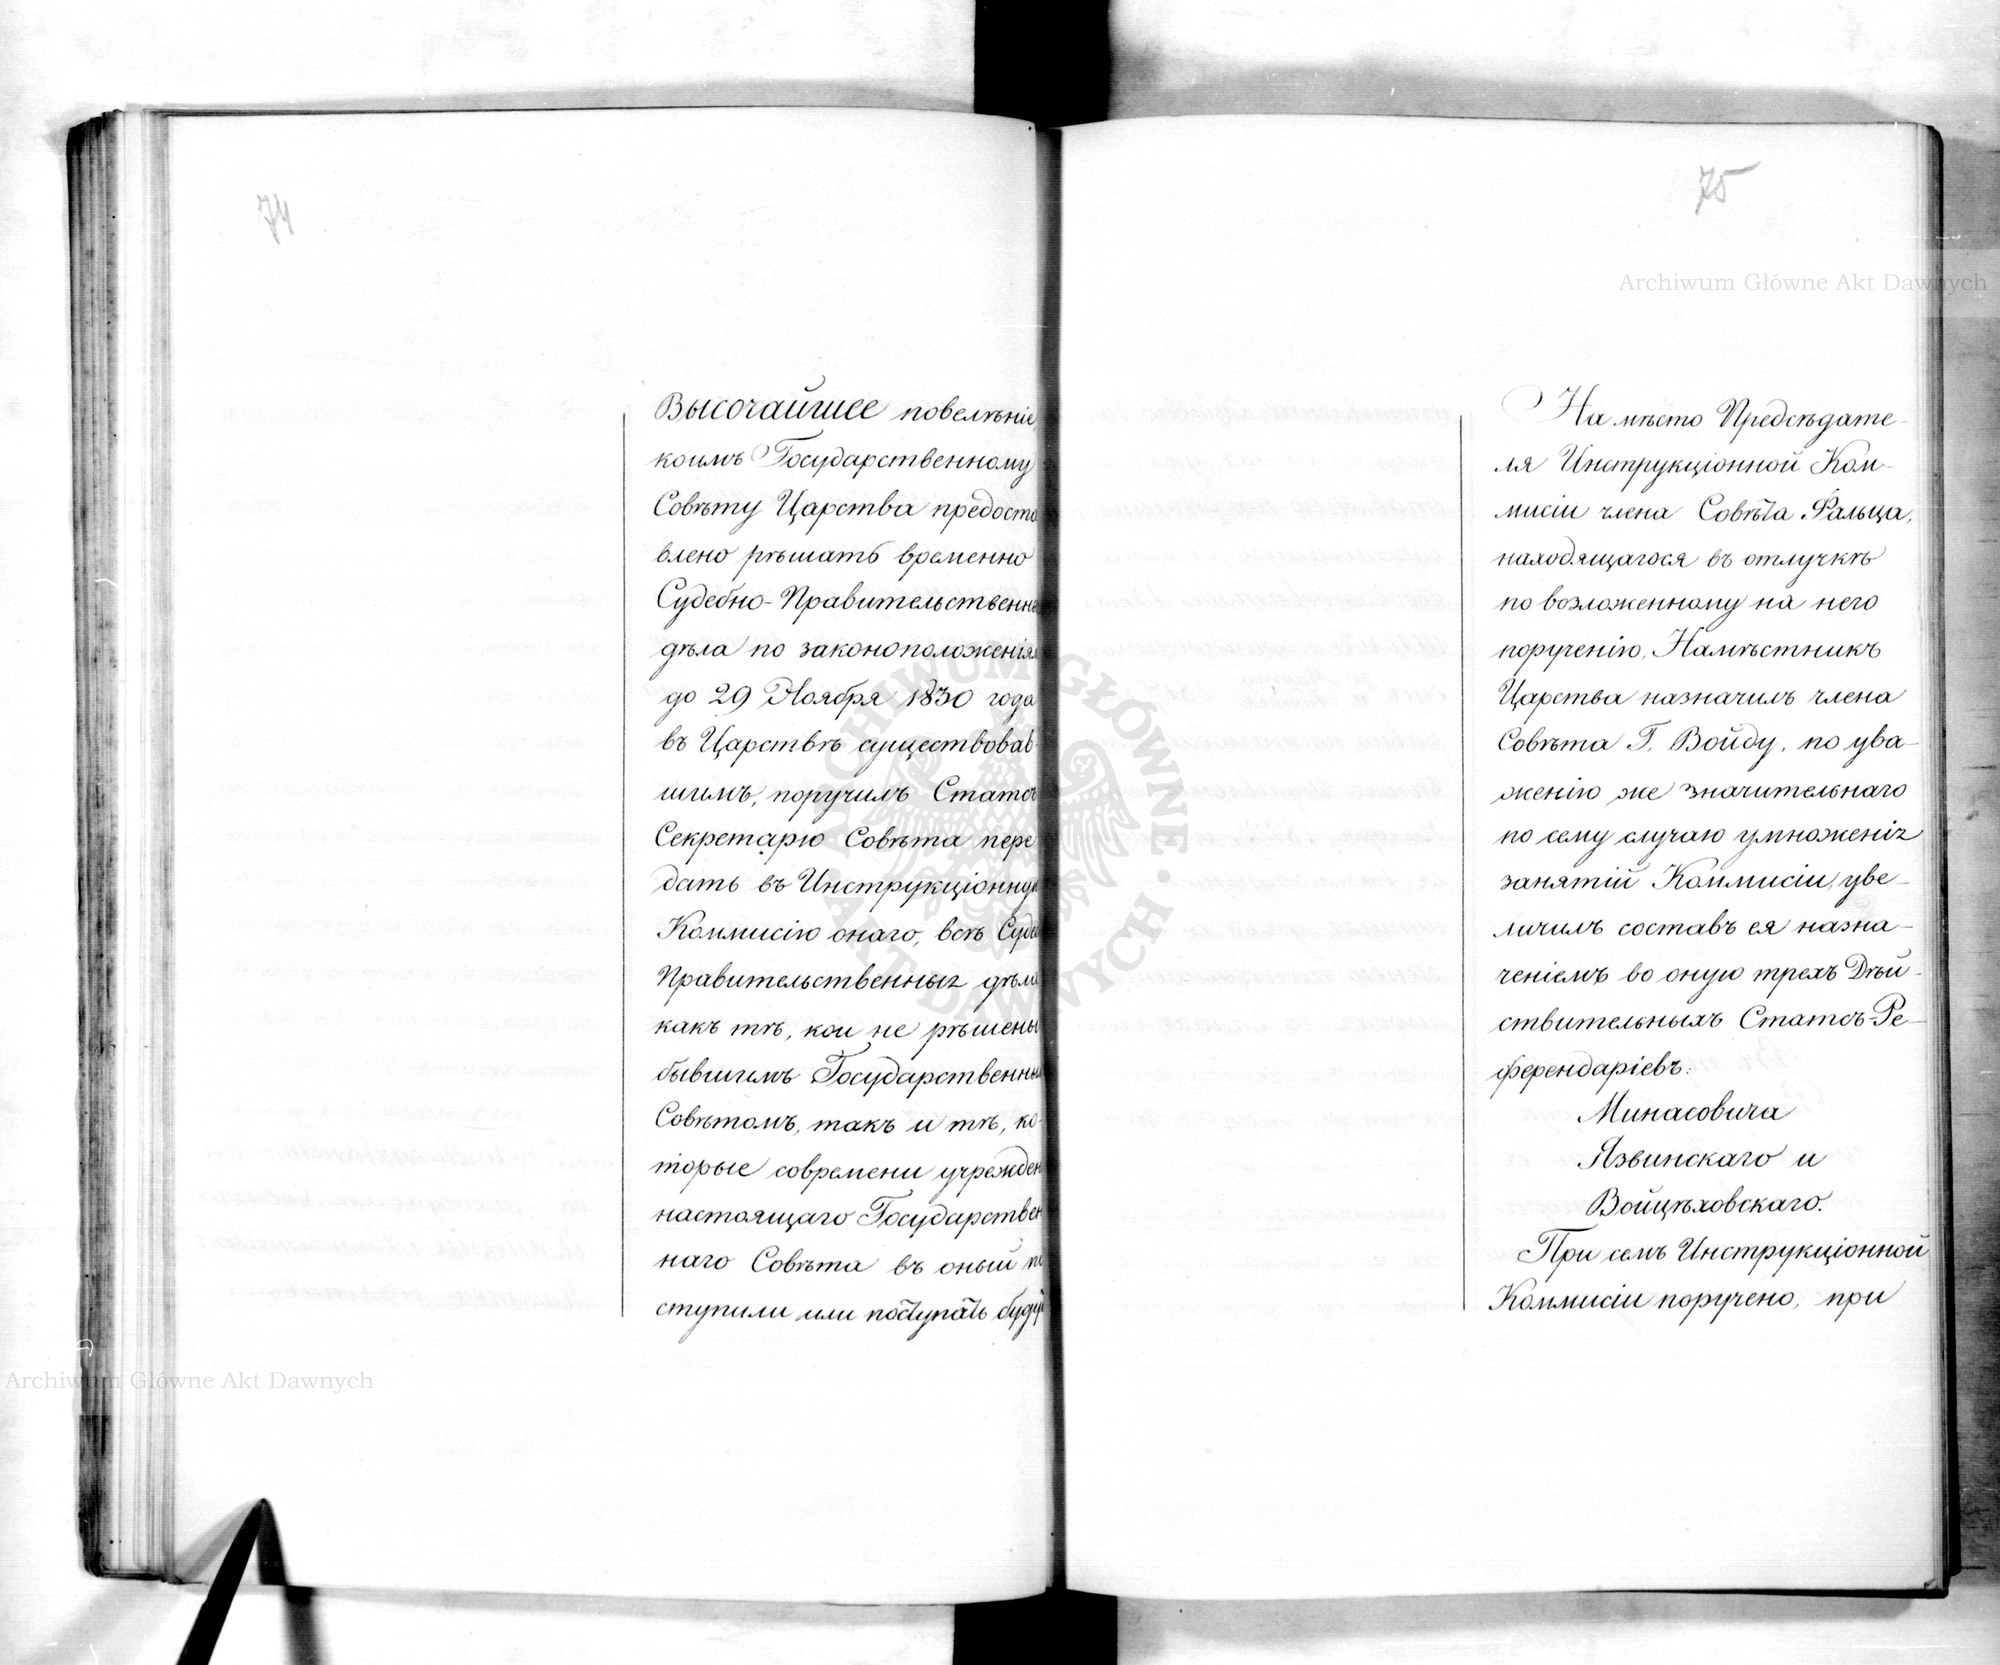 74
Высочайшее повелѣніе,
коимъ Государственному
Совѣту Царства предоста
влено рѣшать временно
Судебно-Правительственн
дѣла по законоположенія
до 29 Ноября 1830 года
въ Царствѣ существовав-
шимъ, поручилъ Статсъ
Секретарю Совѣта пере
дать въ Инструкціонную
Коммисію онаго, всѣ Суде
Правительственныя дѣла
какъ тѣ, кои не рѣшены
бывшимъ Государственны
Совѣтомъ, такъ и тѣ, ко-
торые современи учрежден
настоящаго Государствен
наго Совѣта въ оный по
ступили или поступать буду
75
На мѣсто Предсѣдате-
ля Инструкціонной Ком-
мисіи члена Совѣта Фальца,
находящагося въ отлучкѣ
по возложенному на него
порученію, Намѣстникъ
Царства назначилъ члена
Совѣта Г. Войду, по ува-
женію же значительнаго
по сему случаю умноженія
занятій Коммисіи, уве-
личилъ составъ ея назна-
ченіемъ во оную трехъ Дѣй-
ствительныхъ Статсъ-Ре-
ферендаріевъ:
Минасовича
Язвинскаго и
Войцѣховскаго.
При семъ Инструкціонной
Коммисіи поручено, при
Archiwum Główne Akt Dawnych
Archiwum Główne Akt Dawnych
ARCHIWUM GŁÓWNE AKT DAWNYCH